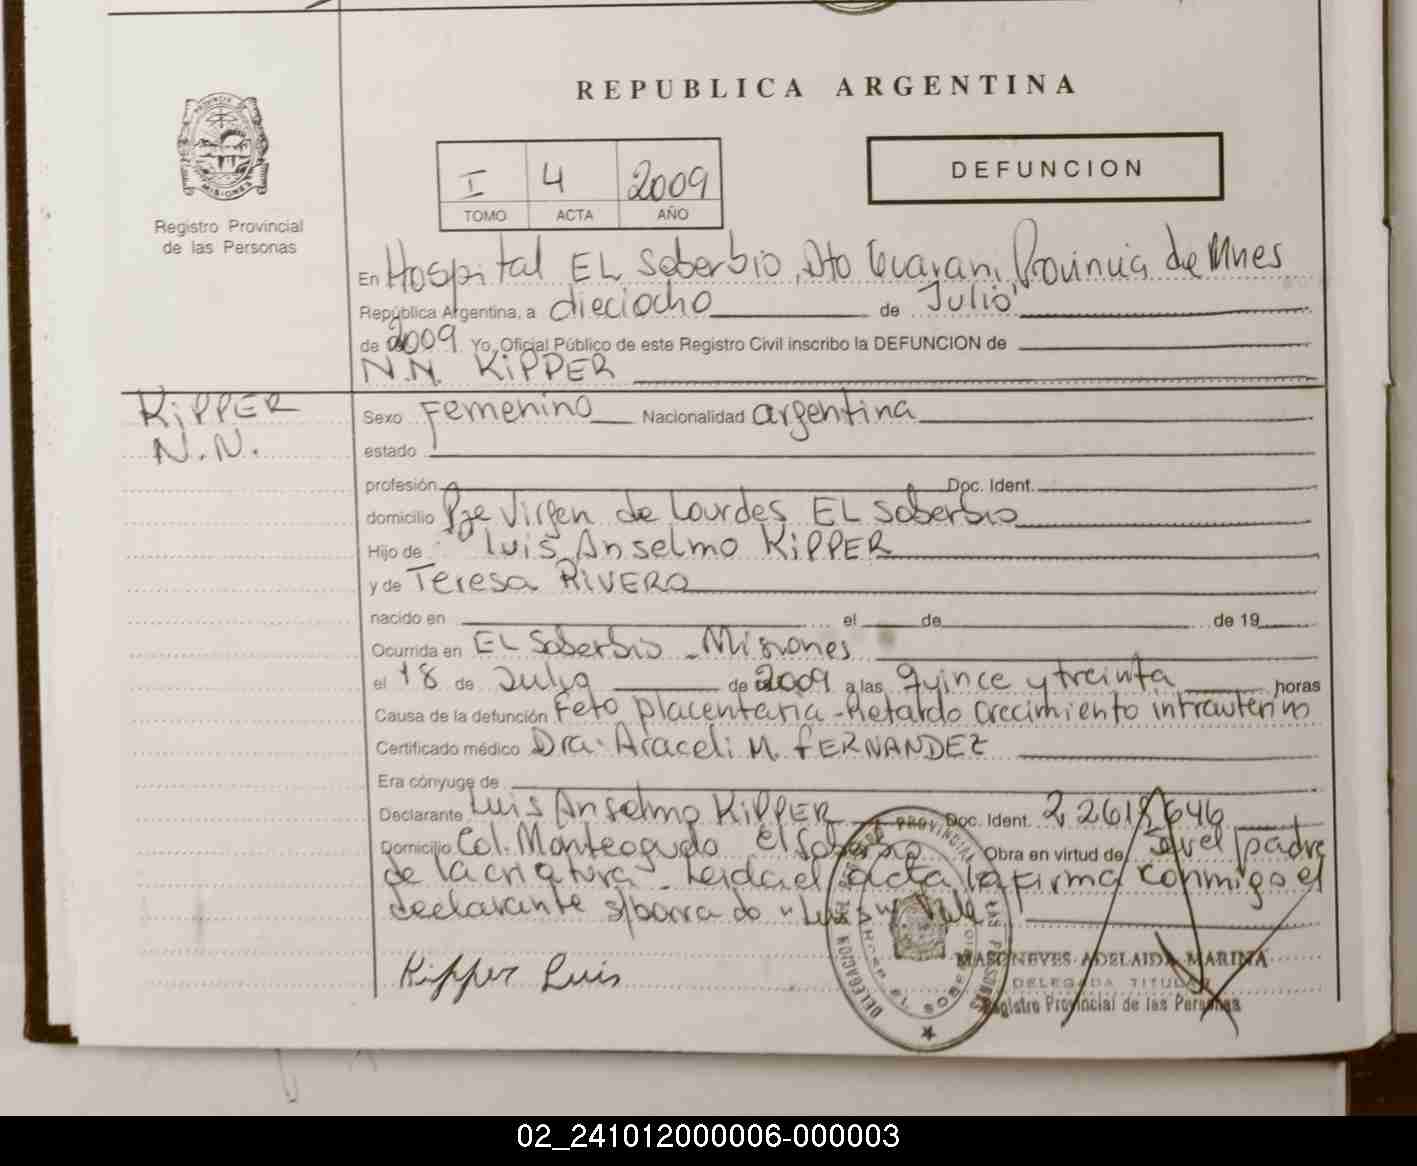 REPUBLICA ARGENTINA
PROVINCIA DE
MISIONES
Registro Provincial
de las Personas
I 4 2009
TOMO ACTA AÑO
DEFUNCION
En Hospital EL Soberbio, Dto Guarani Provincia de Mnes
República Argentina, a dieciocho de Julio
de 2009 Yo, Oficial Público de este Registro Civil inscribo la DEFUNCION de
N.N. KiPPER
KiPPER
N.N.
Sexo Femenino Nacionalidad argentina
estado
profesión Doc. Ident.
domicilio Pje Virgen de Lourdes EL Soberbio
Hijo de Luis Anselmo KiPPER
y de Teresa RiVERO
nacido en el de de 19
Ocurrida en EL Soberbio - Misiones
el 18 de Julio de 2009 a las quince y treinta horas
Causa de la defunción Feto placentaria - Retardo crecimiento intrauterino
Certificado médico Dra. Araceli M. FERNANDEZ
Era cónyuge de
Declarante Luis Anselmo KiPPER Doc. Ident. 2
Domicilio Col. Monteagudo El Soberbio Obra en virtud de Ser el padre
de la criatura - Leida el acta la firma conmigo el
declarante s/borra do "Luis" Vale
Kipper Luis
MASONEVES ADELAIDA MARINA
DELEGADA TITULAR
Registro Provincial de las Personas
02_241012000006-000003